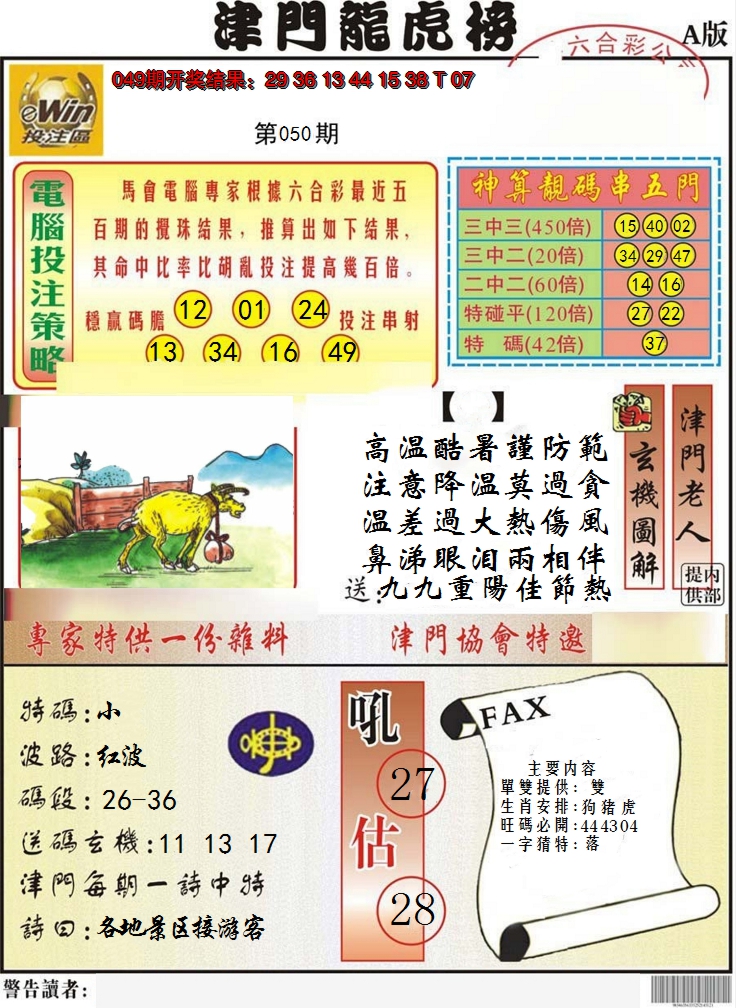 津門龍虎榜
六合彩公
A版
eWin
投注區
049期开奖结果：29 36 13 44 15 38 T 07
第050期
電腦投注策略
馬會電腦專家根據六合彩最近五
百期的攪珠结果，推算出如下结果，
其命中比率比胡亂投注提高幾百倍。
穩贏碼膽 12 01 24 投注串射
13 34 16 49
神算靚碼串五門
三中三(450倍) 15 40 02
三中二(20倍) 34 29 47
二中二(60倍) 14 16
特碰平(120倍) 27 22
特 碼(42倍) 37
【 】
高温酷暑謹防範
注意降温莫過貪
温差過大熱傷風
鼻涕眼泪兩相伴
送：九九重陽佳節熱
玄機圖解
津門老人
内部提供
專家特供一份雜料
津門協會特邀
特碼：小
波路：红波
碼段：26-36
送碼玄機：11 13 17
津門每期一詩中特
詩曰：各地景区接游客
吼
27
估
28
FAX
主要内容
單雙提供：雙
生肖安排：狗猪虎
旺碼必開：444304
一字猜特：落
警告讀者：